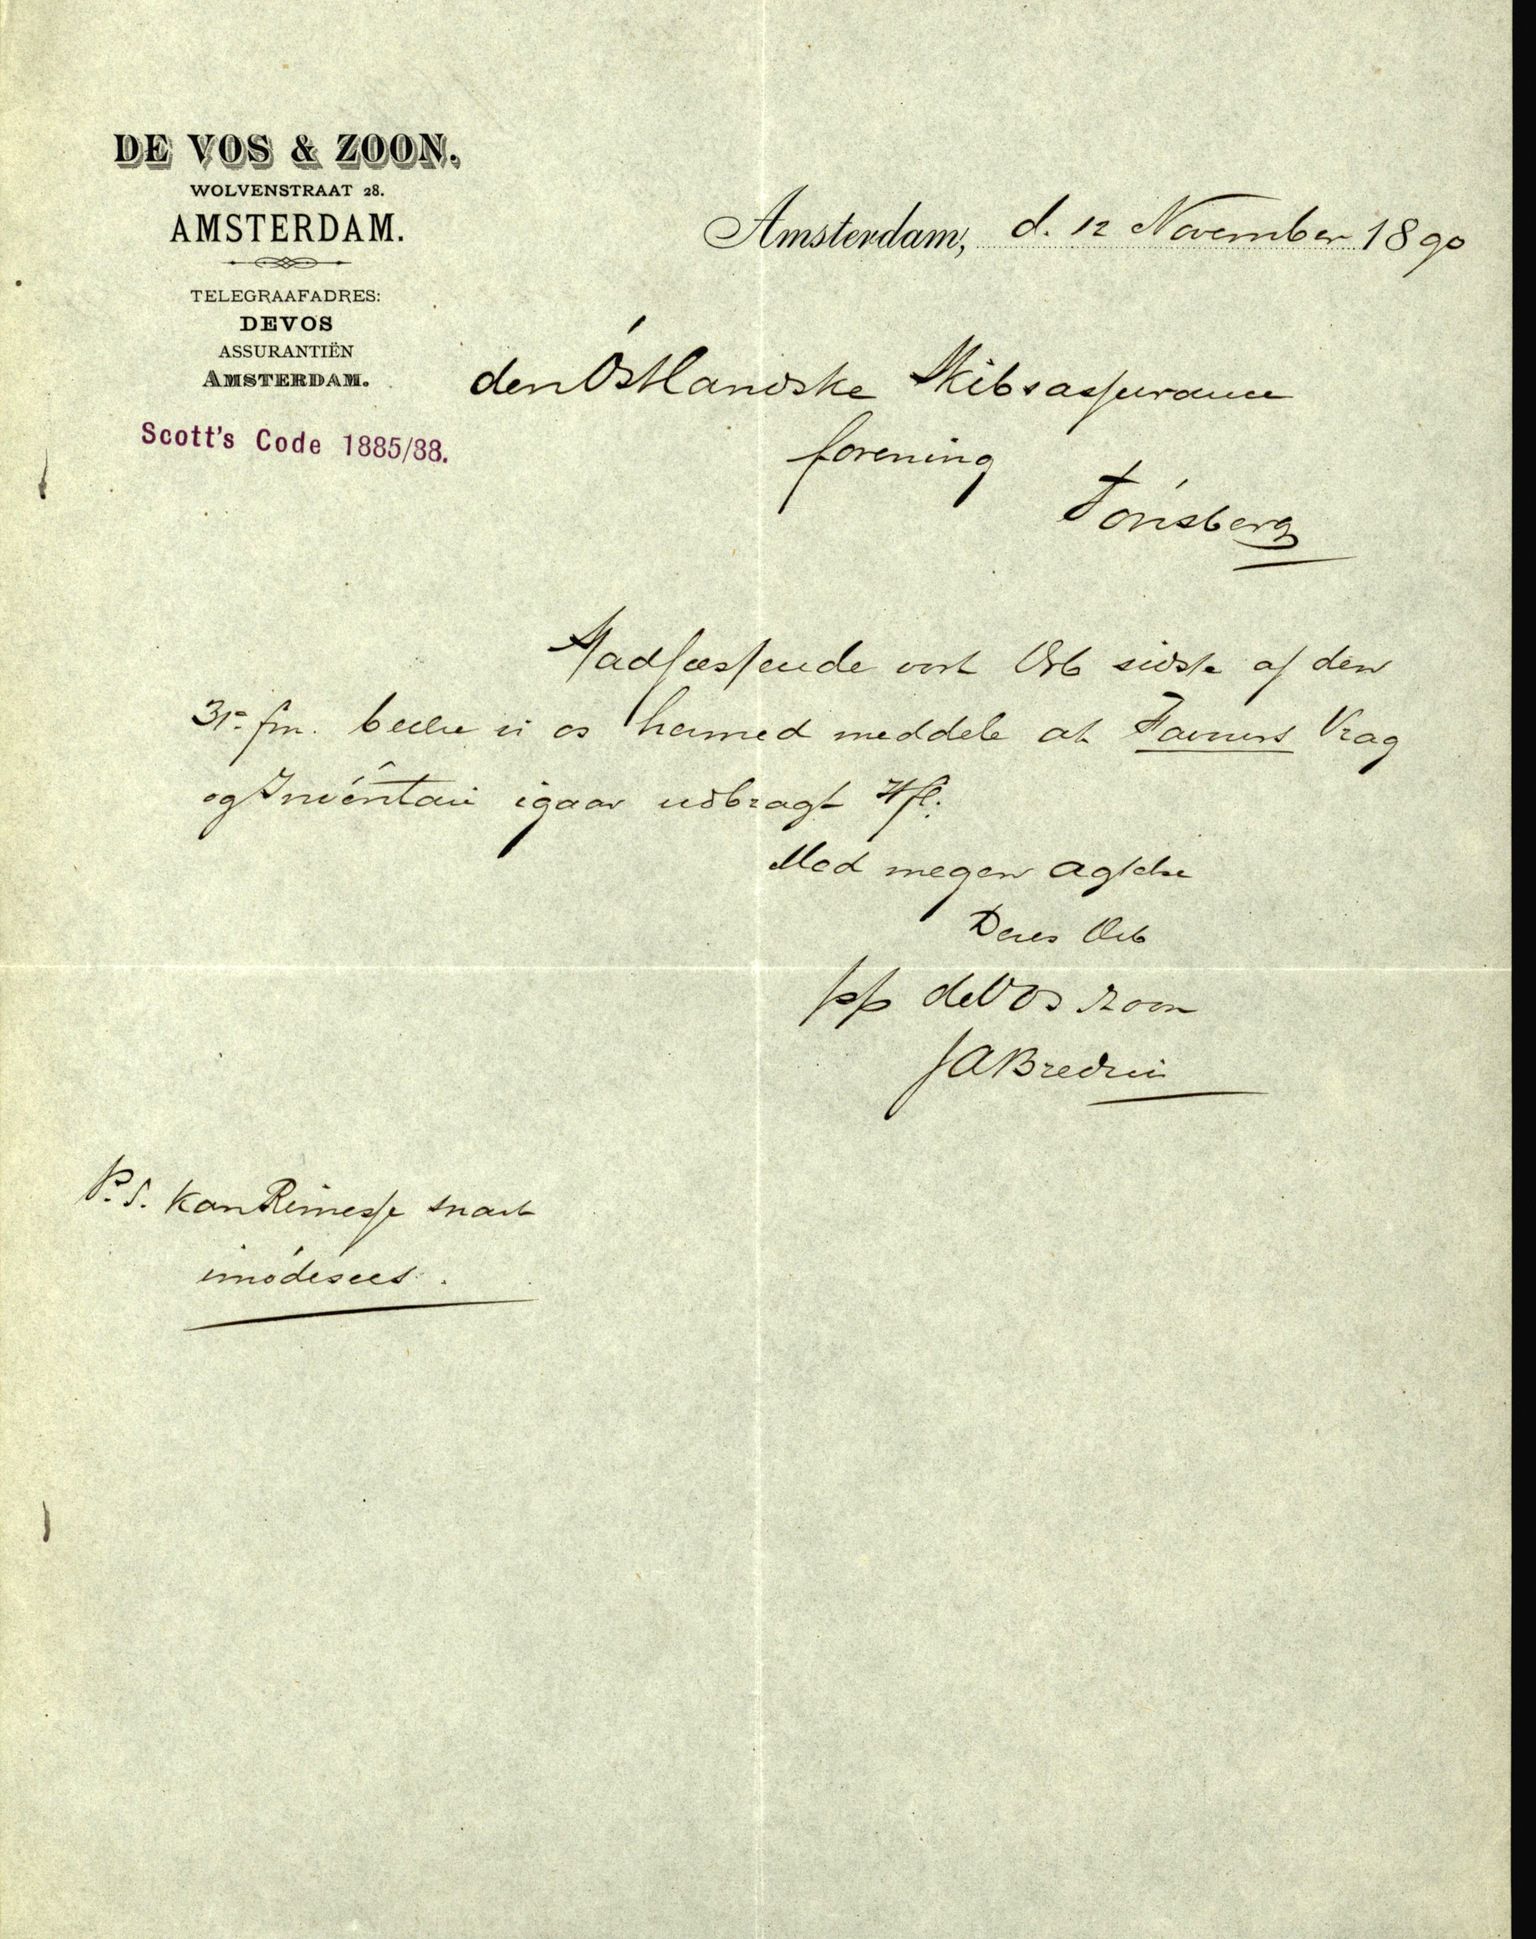 DE VOS & ZOON.
WOLVENSTRAAT 28.
AMSTERDAM.
TELEGRAAFADRES:
DEVOS
ASSURANTIËN
AMSTERDAM.
Scott's Code 1885/88.
Amsterdam, d. 12 November 1890
den Östlandske Skibsassurance
forening
Tönsberg
Stadfæstende vort Ærb sidste af den
31. fm. vi os herved meddele at Vrag
og Inventari igaar udbragt Hfl.
Med megen Agtelse
Deres Ærb
pp de Vos & Zoon
P.S. Kan Rimesse snart
imödesees.